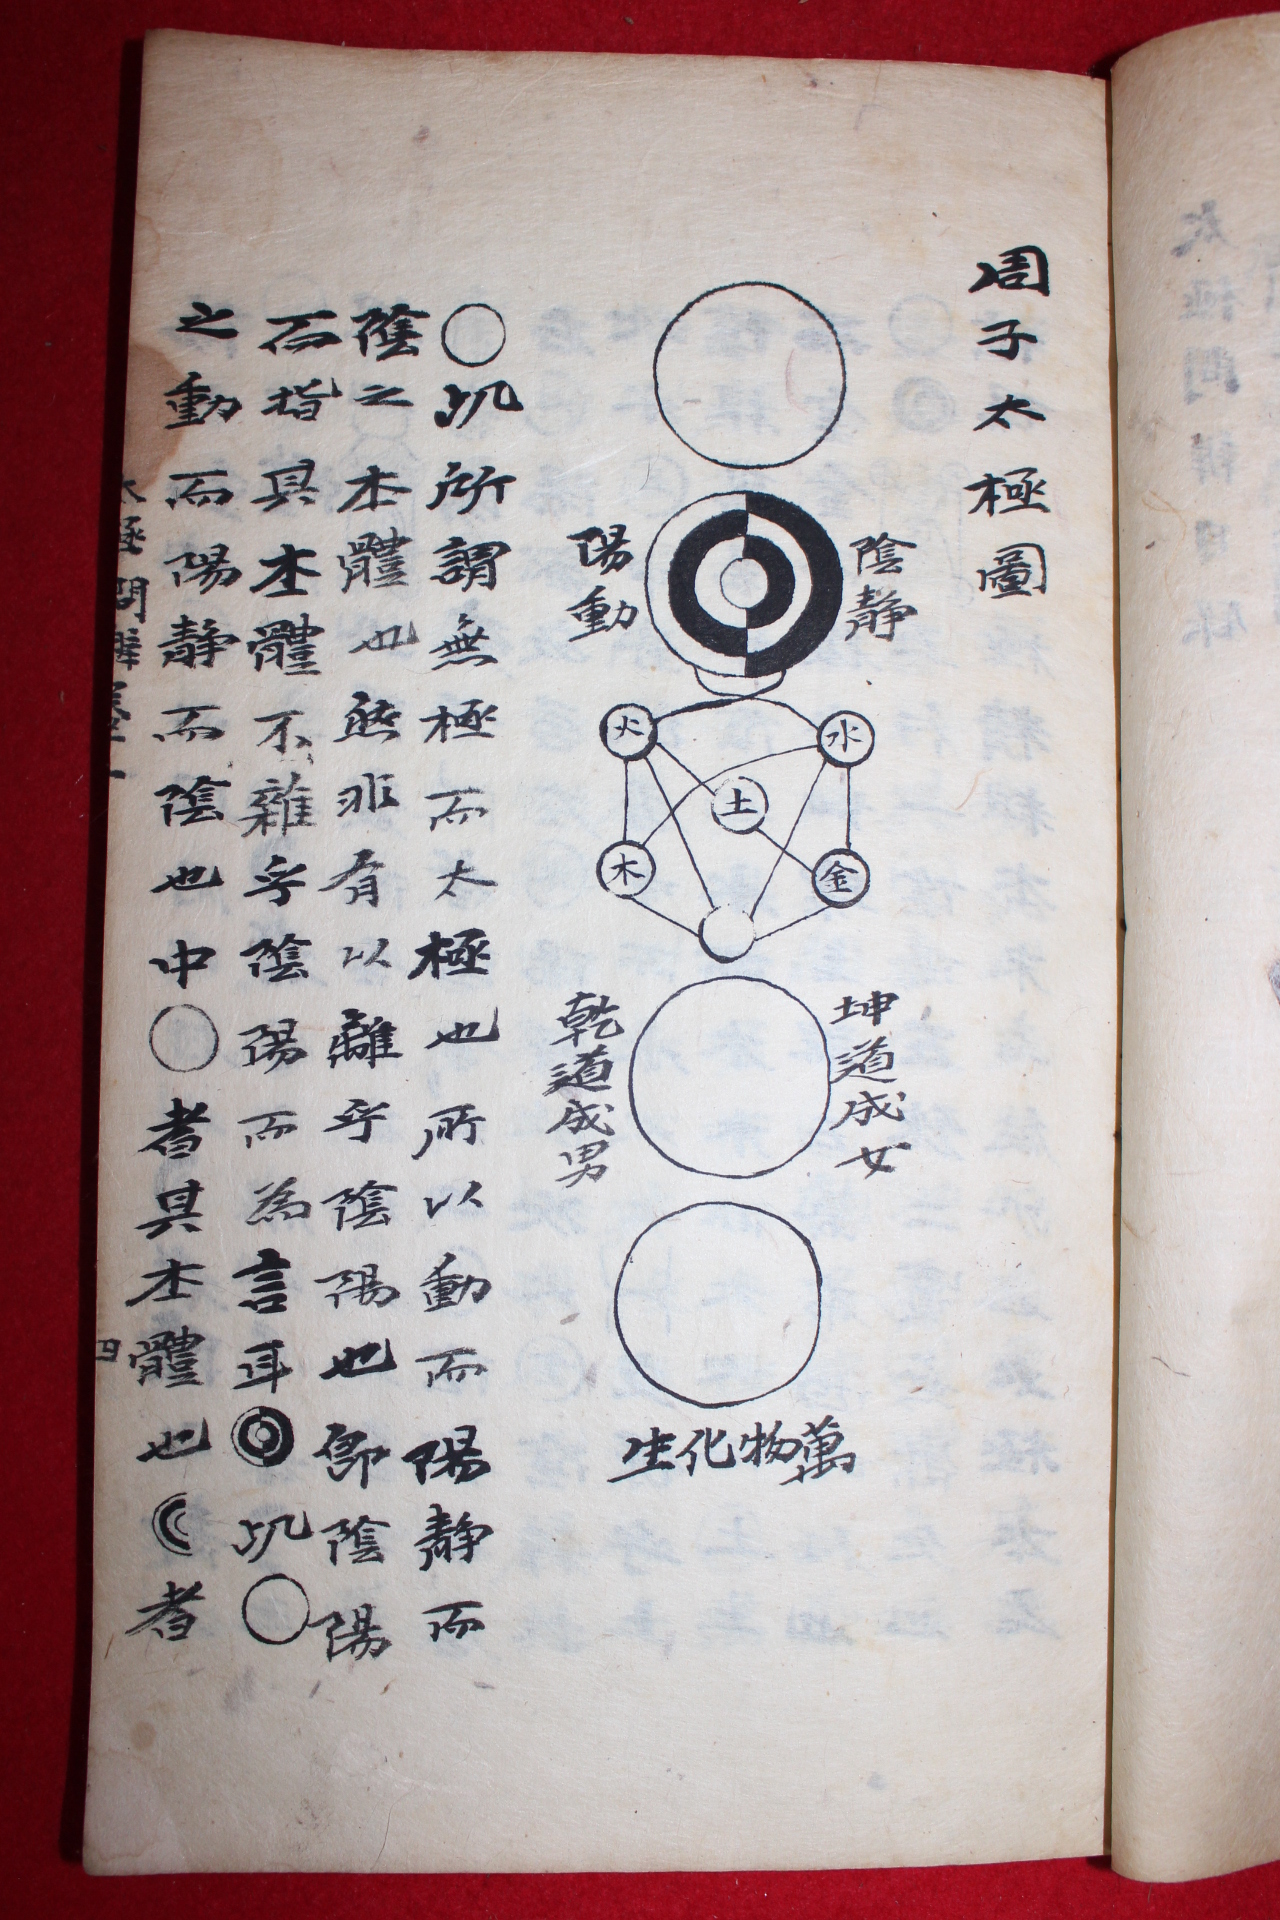 周子太極圖
陰靜
陽動
火
水
土
木
金
坤道成女
乾道成男
萬物化生
○此所謂無極而太極也所以動而陽靜而
陰之本體也然非有以離乎陰陽也卽陰陽
而指其本體不雜乎陰陽而為言耳◎此○
之動而陽靜而陰也中○者其本體也☾者
太極問辨卷之一
四